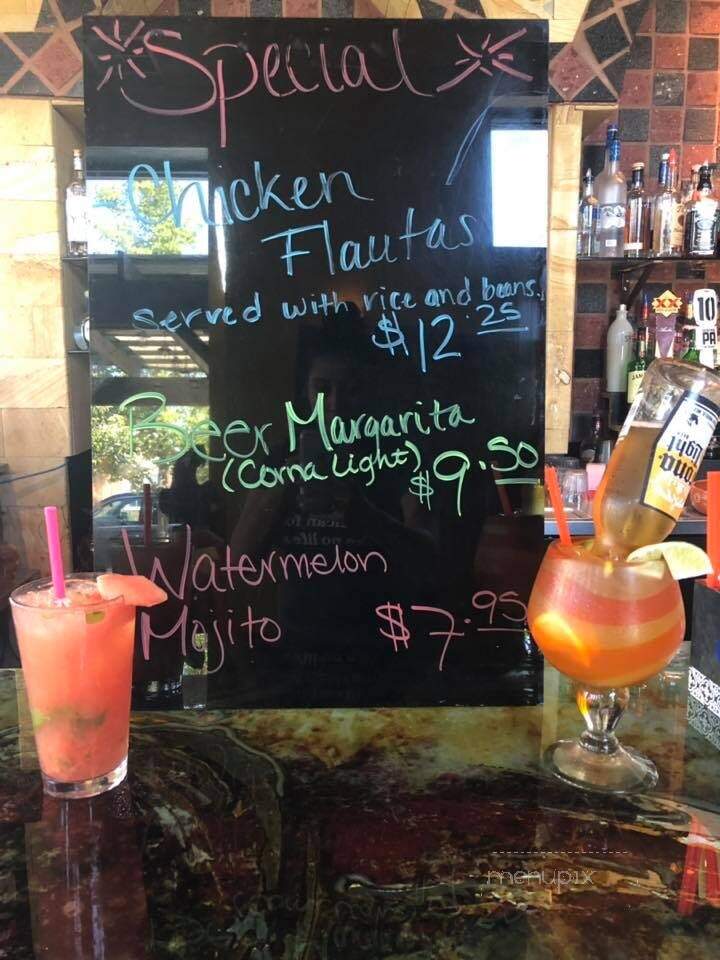 Special
Chicken
Flautas
served with rice and beans.
$12.25
Beer Margarita
(Corna Light) $9.50
Watermelon
Mojito $7.95
XX
10
PA
Corona
Light
menupix